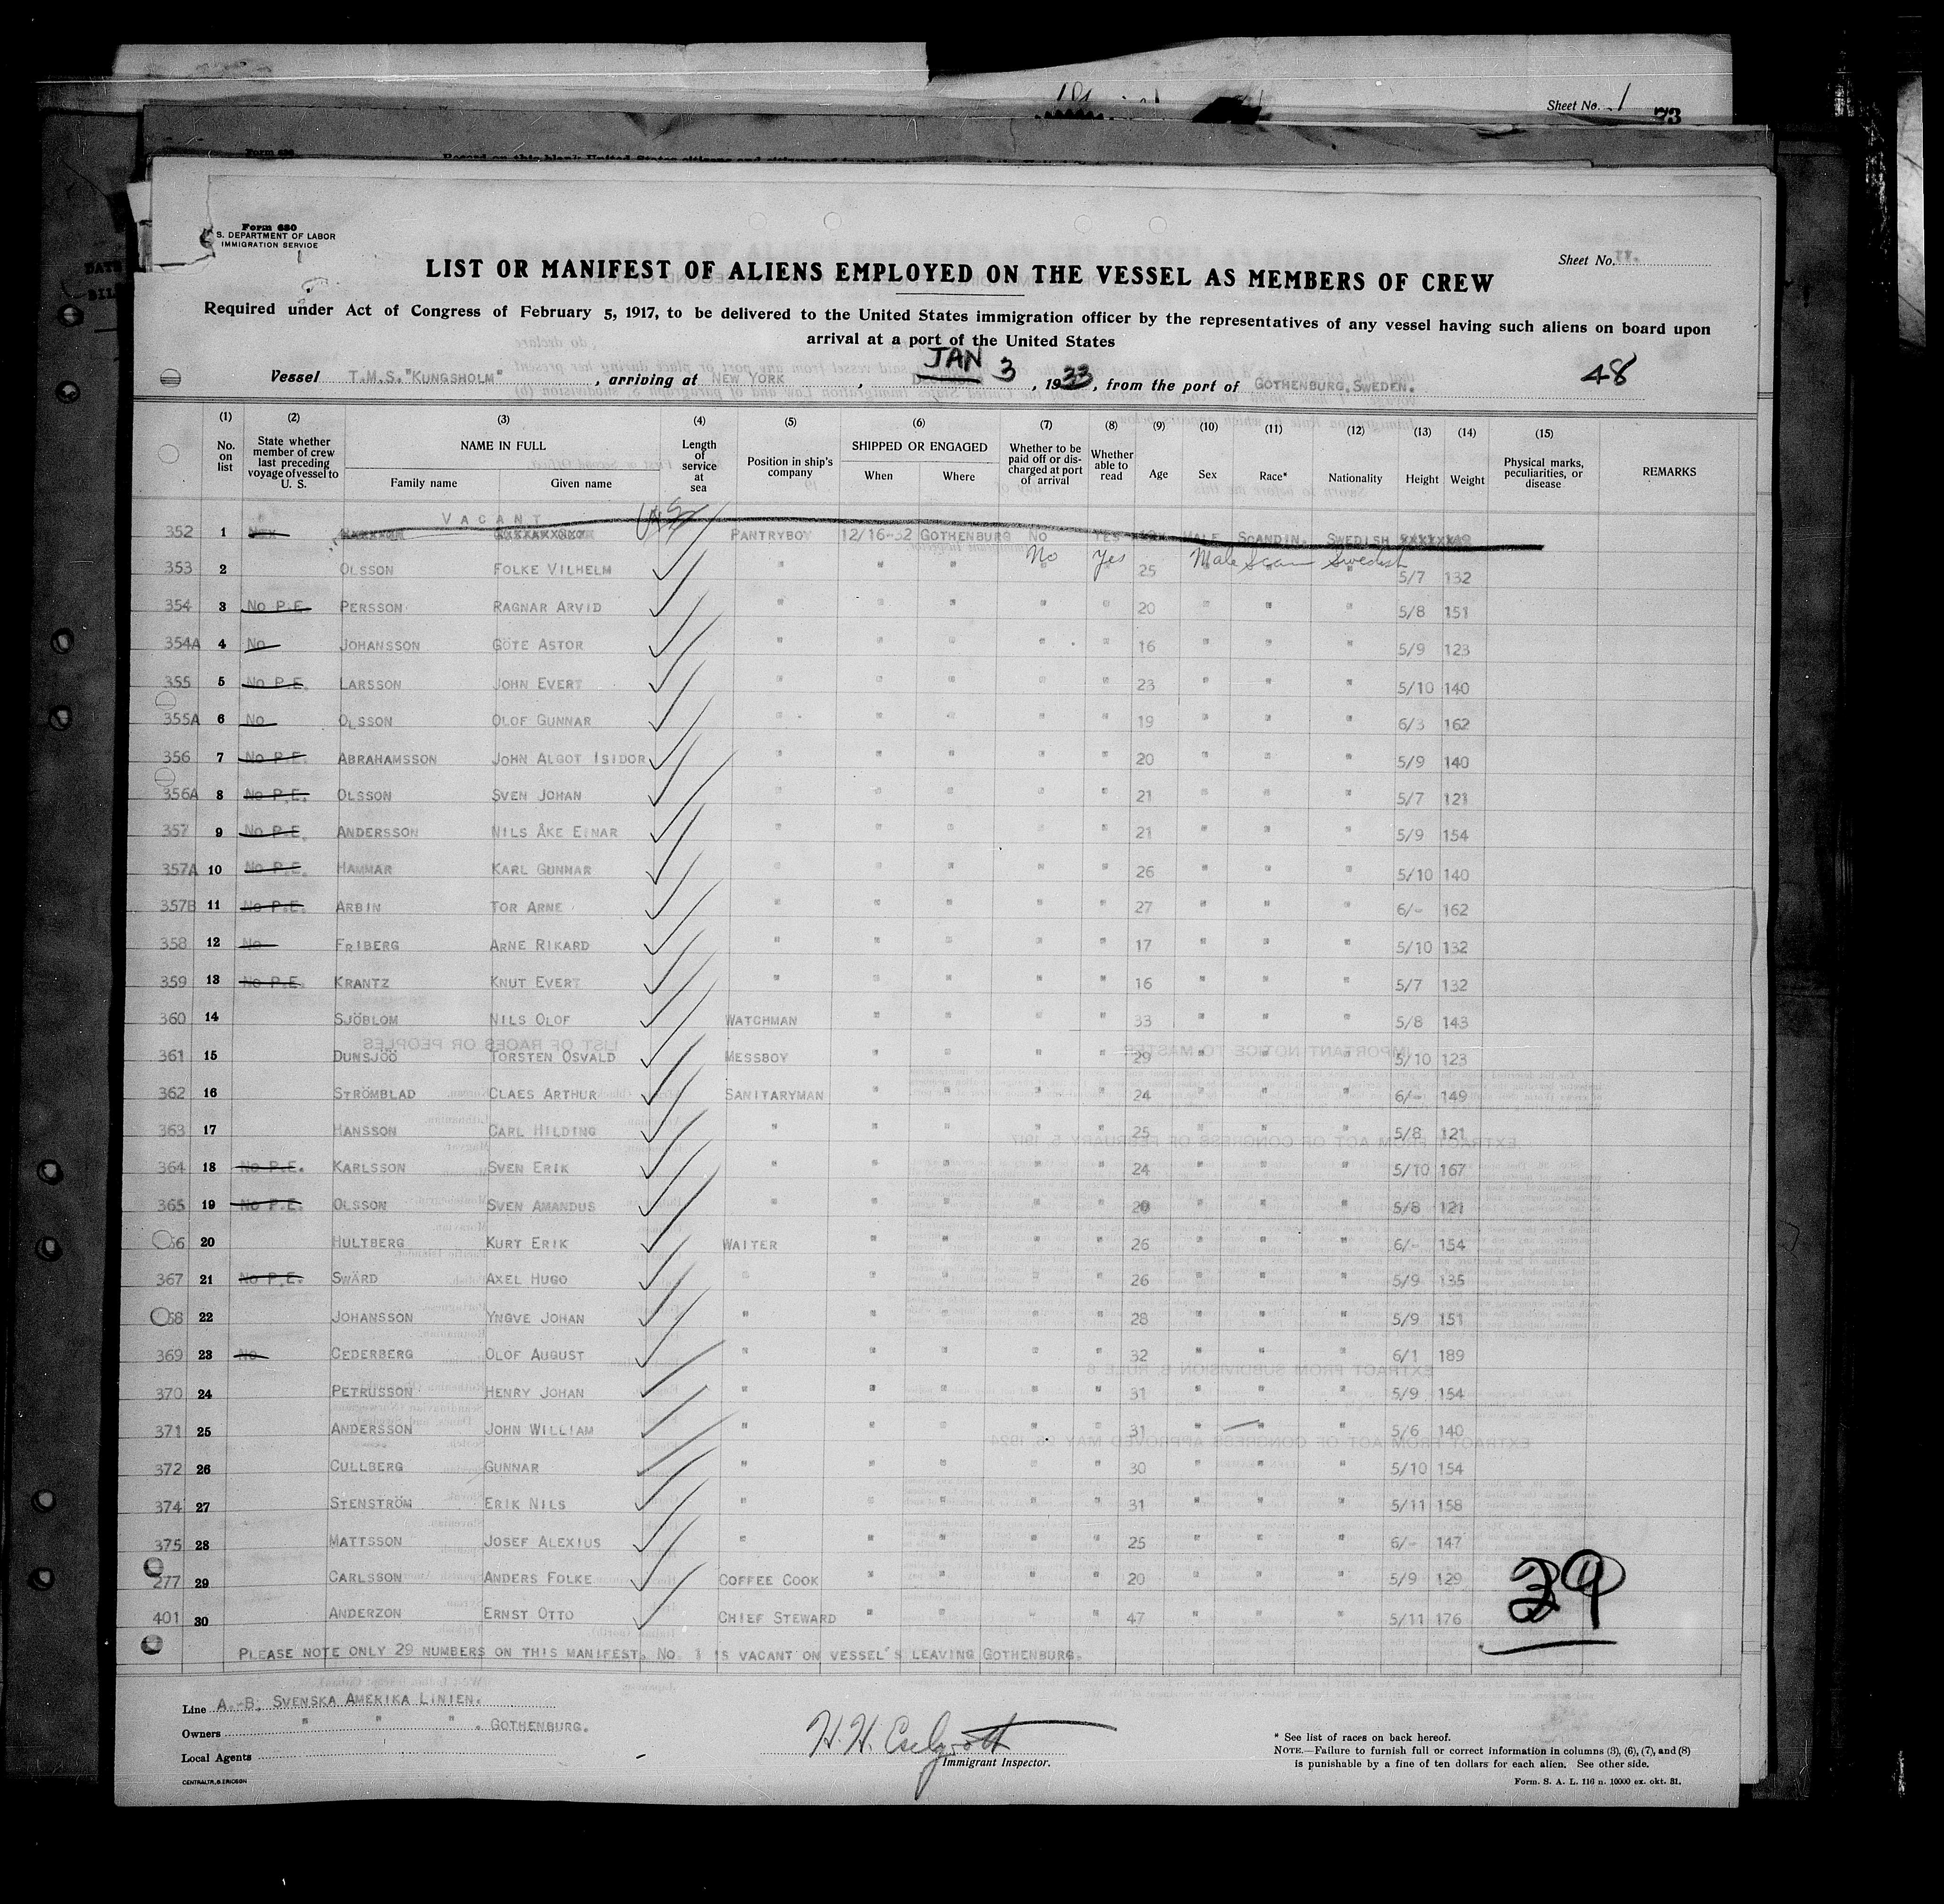 Sheet No. 1
73
Form 680
S. DEPARTMENT OF LABOR
IMMIGRATION SERVICE
Sheet No. 11.
LIST OR MANIFEST OF ALIENS EMPLOYED ON THE VESSEL AS MEMBERS OF CREW
Required under Act of Congress of February 5, 1917, to be delivered to the United States immigration officer by the representatives of any vessel having such aliens on board upon
arrival at a port of the United States
Vessel T.M.S."KUNGSHOLM", arriving at NEW YORK, JAN 3, 1933, from the port of GOTHENBURG,SWEDEN. 48
(1) (2) (3) (4) (5) (6) (7) (8) (9) (10) (11) (12) (13) (14) (15)
No. on list State whether member of crew last preceding voyage of vessel to U. S. NAME IN FULL Family name Given name Length of service at sea Position in ship's company SHIPPED OR ENGAGED When Where Whether to be paid off or discharged at port of arrival Whether able to read Age Sex Race* Nationality Height Weight Physical marks, peculiarities, or disease REMARKS
VACANT
352 1 PANTRYBOY 12/16-32 GOTHENBURG NO YES MALE SCANDIN. SWEDISH
353 2 OLSSON FOLKE VILHELM " " " No Yes 25 Male Scan Swedish 5/7 132
354 3 No P.E. PERSSON RAGNAR ARVID " " " " " 20 " " " 5/8 151
354A 4 No JOHANSSON GÖTE ASTOR " " " " " 16 " " " 5/9 123
355 5 No P.E. LARSSON JOHN EVERT " " " " " 23 " " " 5/10 140
355A 6 No OLSSON OLOF GUNNAR " " " " " 19 " " " 6/3 162
356 7 No P.E. ABRAHAMSSON JOHN ALGOT ISIDOR " " " " " 20 " " " 5/9 140
356A 8 No P.E. OLSSON SVEN JOHAN " " " " " 21 " " " 5/7 121
357 9 No P.E. ANDERSSON NILS ÅKE EINAR " " " " " 21 " " " 5/9 154
357A 10 No P.E. HAMMAR KARL GUNNAR " " " " " 26 " " " 5/10 140
357B 11 No P.E. ARBIN TOR ARNE " " " " " 27 " " " 6/- 162
358 12 No FRIBERG ARNE RIKARD " " " " " 17 " " " 5/10 132
359 13 No P.E. KRANTZ KNUT EVERT " " " " " 16 " " " 5/7 132
360 14 SJÖBLOM NILS OLOF WATCHMAN " " " " 33 " " " 5/8 143
361 15 DUNSJÖÖ TORSTEN OSVALD MESSBOY " " " " 29 " " " 5/10 123
362 16 STRÖMBLAD CLAES ARTHUR SANITARYMAN " " " " 24 " " " 6/- 149
363 17 HANSSON CARL HILDING " " " " " 25 " " " 5/8 121
364 18 No P.E. KARLSSON SVEN ERIK " " " " " 24 " " " 5/10 167
365 19 No P.E. OLSSON SVEN AMANDUS " " " " " 20 " " " 5/8 121
66 20 HULTBERG KURT ERIK WAITER " " " " 26 " " " 6/- 154
367 21 No P.E. SWÄRD AXEL HUGO " " " " " 26 " " " 5/9 135
68 22 JOHANSSON YNGVE JOHAN " " " " " 28 " " " 5/9 151
369 23 No CEDERBERG OLOF AUGUST " " " " " 32 " " " 6/1 189
370 24 PETRUSSON HENRY JOHAN " " " " " 31 " " " 5/9 154
371 25 ANDERSSON JOHN WILLIAM " " " " " 31 " " " 5/6 140
372 26 CULLBERG GUNNAR " " " " " 30 " " " 5/10 154
374 27 STENSTRÖM ERIK NILS " " " " " 31 " " " 5/11 158
375 28 MATTSSON JOSEF ALEXIUS " " " " " 25 " " " 6/- 147
277 29 CARLSSON ANDERS FOLKE COFFEE COOK " " " " 20 " " " 5/9 129
401 30 ANDERZON ERNST OTTO CHIEF STEWARD " " " " 47 " " " 5/11 176
29
PLEASE NOTE ONLY 29 NUMBERS ON THIS MANIFEST. NO. 1 IS VACANT ON VESSEL'S LEAVING GOTHENBURG.
Line A.-B. SVENSKA AMERIKA LINIEN.
Owners " " " . GOTHENBURG.
Local Agents
Immigrant Inspector.
* See list of races on back hereof.
NOTE.—Failure to furnish full or correct information in columns (3), (6), (7), and (8)
is punishable by a fine of ten dollars for each alien. See other side.
CENTRALTR. G. ERICSON
Form. S. A. L. 116 n. 10000 ex. okt. 31.